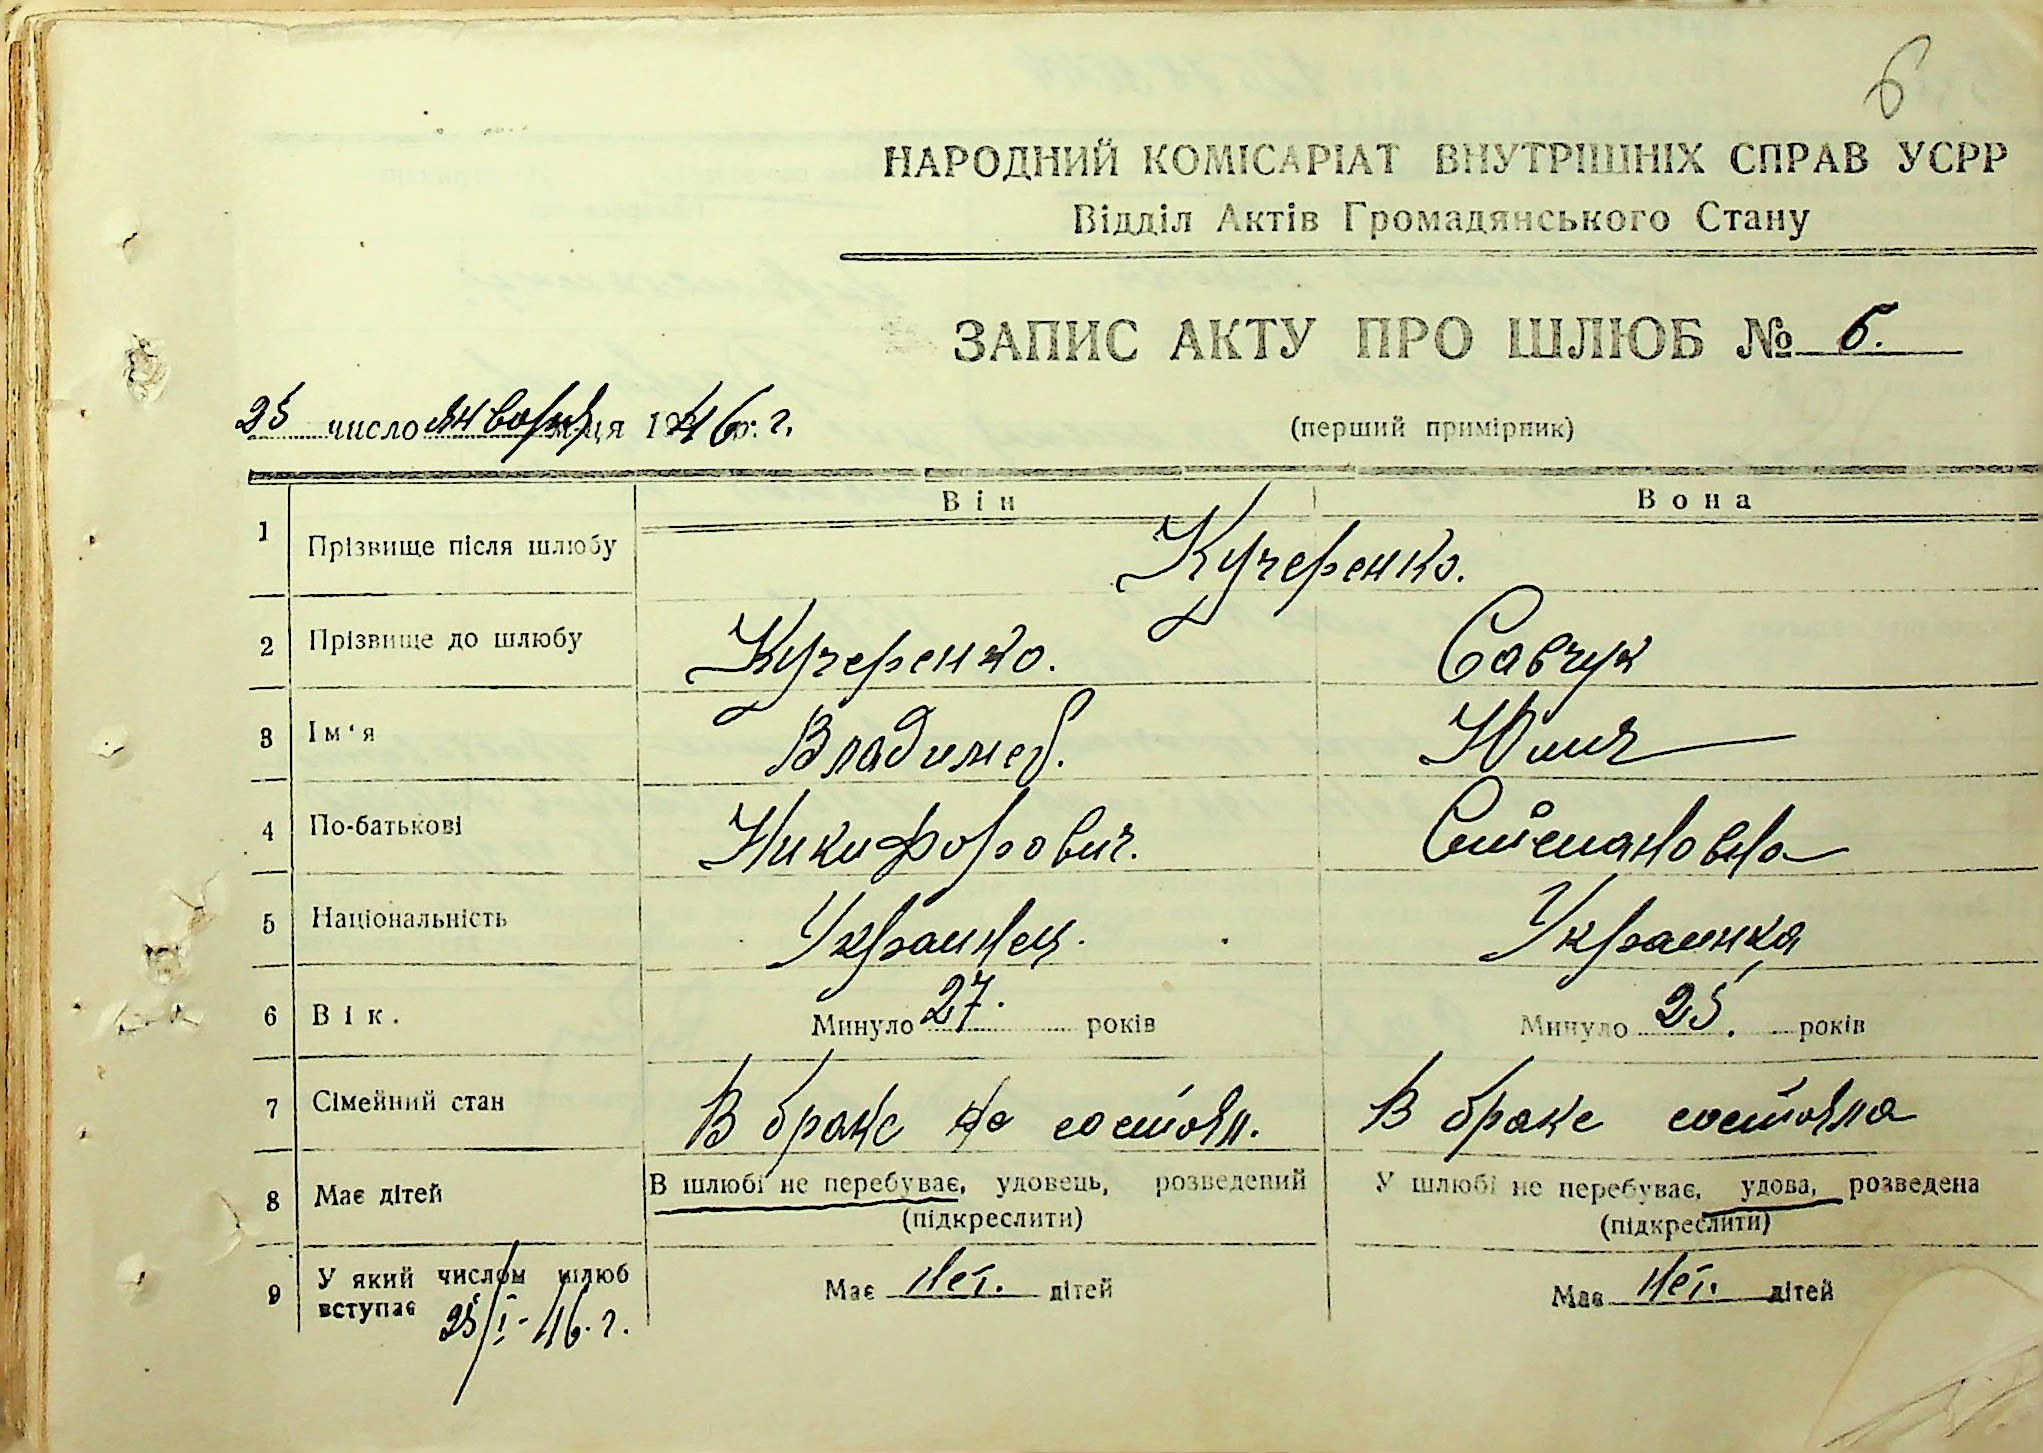 6
НАРОДНИЙ КОМІСАРІАТ ВНУТРІШНІХ СПРАВ УСРР
Відділ Актів Громадянського Стану
ЗАПИС АКТУ ПРО ШЛЮБ № 6.
25 число января м-ця 1946 р. г.
(перший примірник)
Він Вона
1 Прізвище після шлюбу Кучеренко.
2 Прізвище до шлюбу Кучеренко. Савчук
3 Ім'я Владимер. Юлия
4 По-батькові Никифорович. Степановна
5 Національність Украинец. Украинка
6 Вік. Минуло 27. років Минуло 25. років
7 Сімейний стан В браке не состоял. В браке состояла
8 Має дітей В шлюбі не перебуває, удовець, розведений У шлюбі не перебуває, удова, розведена
(підкреслити) (підкреслити)
9 У який числом шлюб
вступає 25/I-46. г. Має Нет. дітей Має Нет. дітей